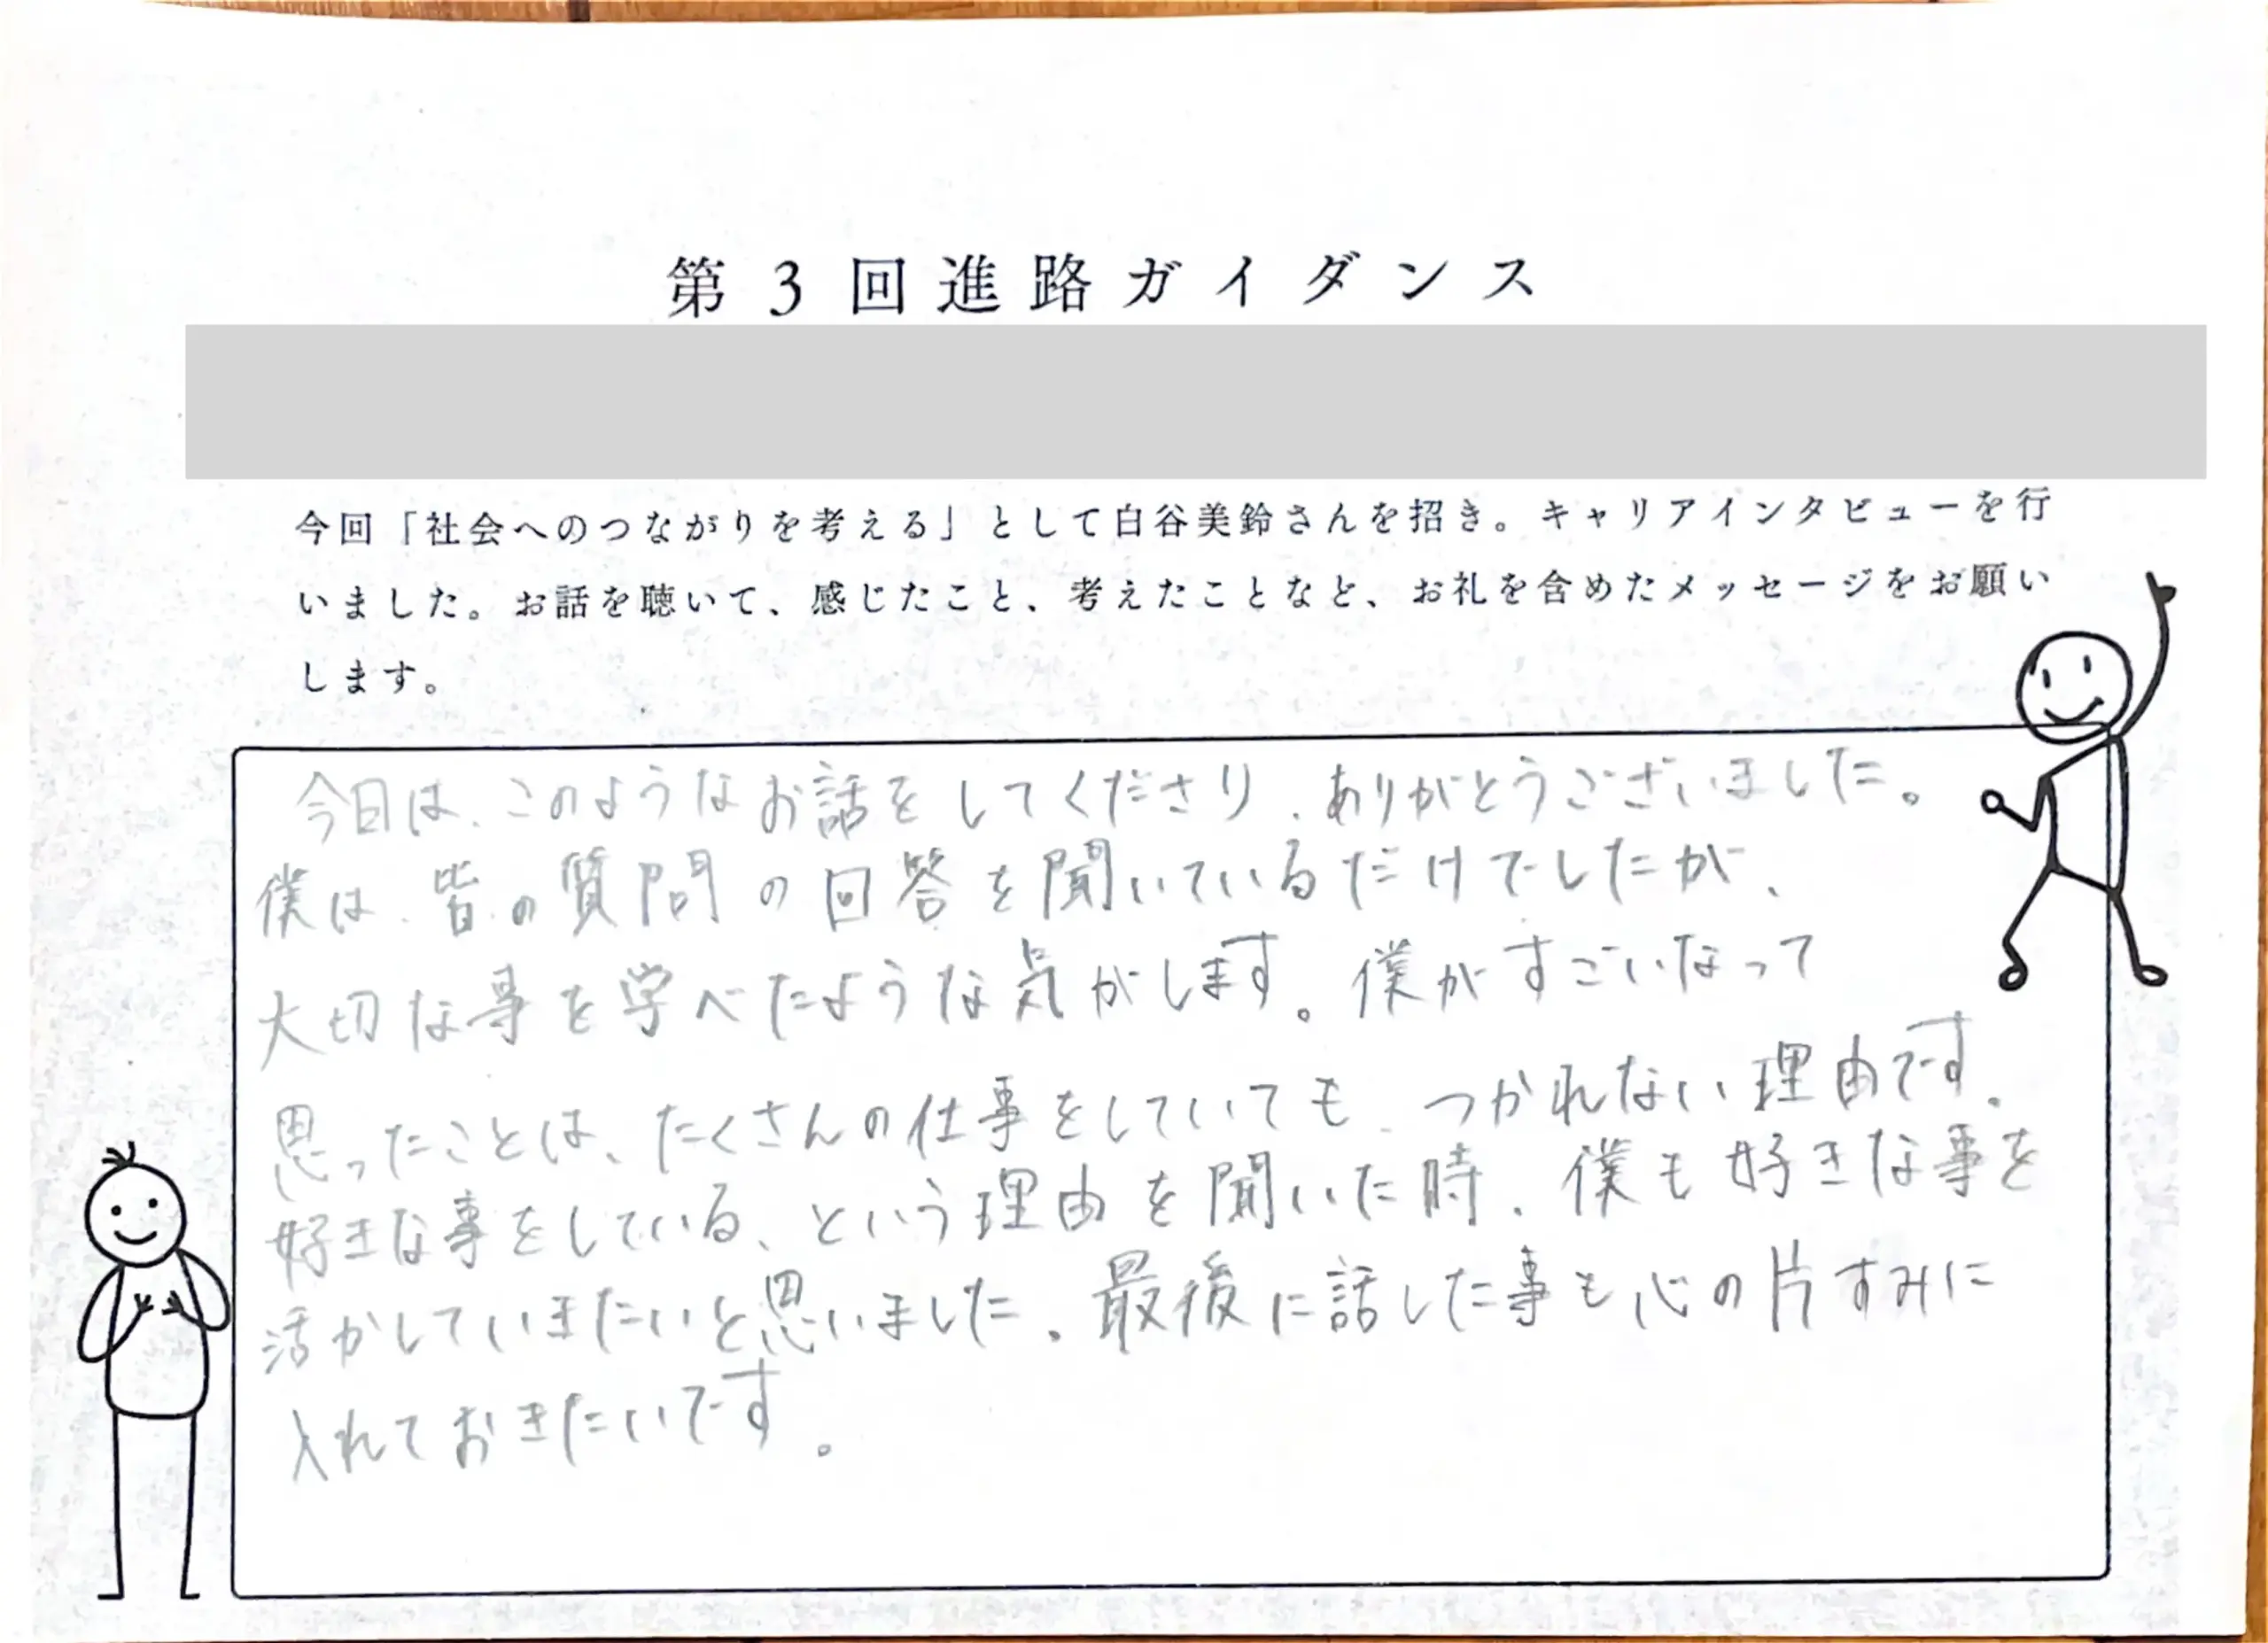 第3回進路ガイダンス
今回「社会へのつながりを考える」として白谷美鈴さんを招き。キャリアインタビューを行
いました。お話を聴いて、感じたこと、考えたことなど、お礼を含めたメッセージをお願い
します。
今日は、このようなお話をしてくださり、ありがとうございました。
僕は、皆の質問の回答を聞いているだけでしたが、
大切な事を学べたような気がします。僕がすごいなって
思ったことは、たくさんの仕事をしていても、つかれない理由です。
好きな事をしている、という理由を聞いた時、僕も好きな事を
活かしていきたいと思いました。最後に話した事も心の片すみに
入れておきたいです。